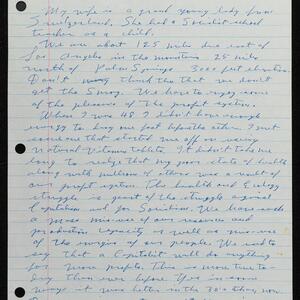 My wife is a grand young lady from
Switzerland. She had a Socialist school
teacher as a child.
We are about 125 miles due east of
Los Angeles in the mountains 25 miles
north of Palm Springs 3000 feet elevation.
Don't think tho that we don't
get the Smog. We have to enjoy some
of the pleasures of the profit system.
When I was 48 I didn't have enough
energy to drag one foot before the other. I just
some that started me off on using
Natural Vitamin tablets. It didn't take me
long to realize that my poor state of health
along with millions of others was a result of
our profit system. The health and Ecology
struggle is part of the struggle against
Capitalism and for Socialism. We have such
a mass misuse of our resources and
productive capacity as well as misuse
of the energies of our people. We used to
say that a Capitalist will do anything
for more profits. This is more true to-
day than ever before. Yes in some
ways it was better in the 30's than now.